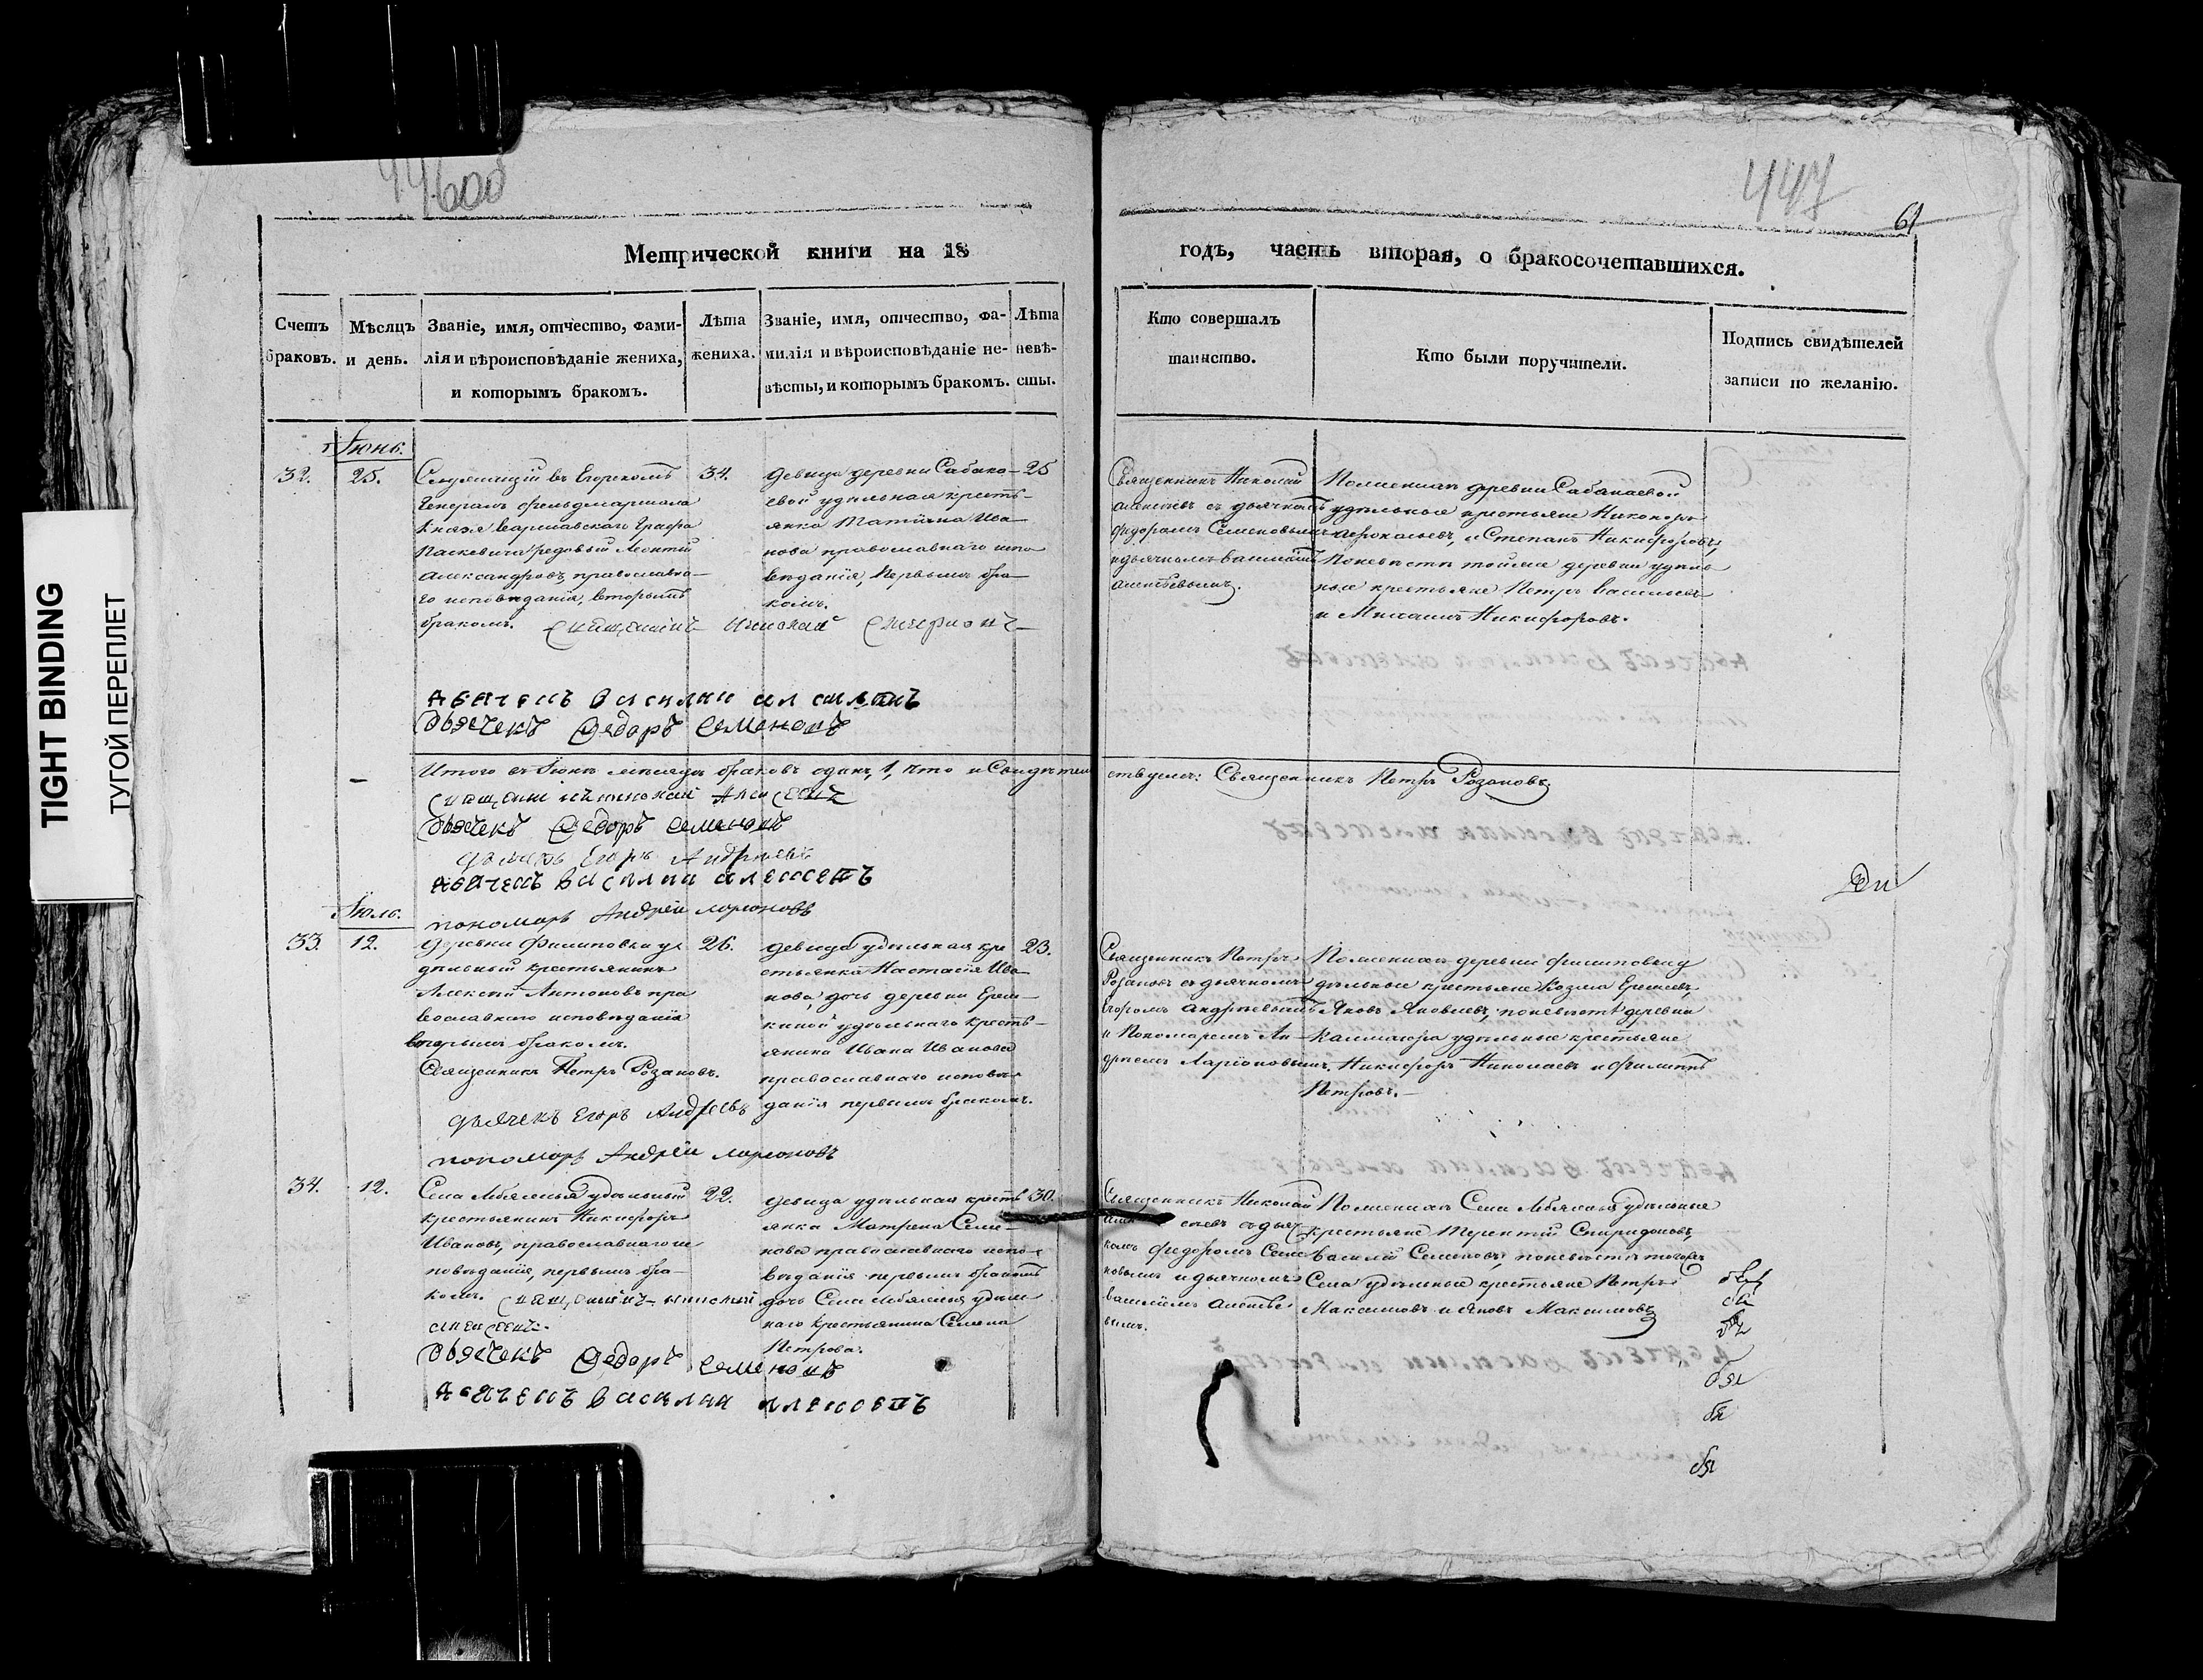 TIGHT BINDING
ТУГОЙ ПЕРЕПЛЕТ
447
61
Метрической книги на 18
годъ, часть вторая, о бракосочетавшихся.
Счетъ браковъ.
Мѣсяцъ и день.
Званіе, имя, отчество, фами-
лія и вѣроисповѣданіе жениха,
и которымъ бракомъ.
Лѣта
жениха.
Званіе, имя, отчество, фа-
милія и вѣроисповѣданіе не-
вѣсты, и которымъ бракомъ.
Лѣта
невѣ-
сты.
Кто совершалъ
таинство.
Кто были поручители.
Подпись свидѣтелей
записи по желанію.
Іюнь.
32.
25.
Служащій въ Егорскомъ
Генералъ фельдмаршала
Князя Варшавскаго Графа
Паскевича рядовый Леонтій
Александровъ, православна-
го исповѣданія, вторымъ
бракомъ.
34.
девица деревни Сабака-
евой удѣльная кресть-
янка Татіана Ива-
нова православнаго испо
вѣданія, первымъ бра-
комъ.
25
Священникъ Николай
Алексѣевъ съ дьячкомъ
Федоромъ Семеновымъ
и дьячкомъ Василіемъ
Алексѣевымъ.
По женихѣ деревни Сабакаевой
удѣльные крестьяне Никоноръ
и Степанъ Никифоровъ,
По невѣстѣ тойже деревни удѣль
ные крестьяне Петръ Васильевъ
и Михаилъ Никифоровъ.
дьячекъ Василии алексѣевъ
Дьячекъ Федоръ Семеновъ
Итого въ Іюнѣ месяцѣ браковъ одинъ, 1, что и Свидѣтель
ствуемъ: Священникъ Петръ Розановъ
Священникъ николай Алексѣевъ
Дьячекъ Федоръ Семеновъ
дьячекъ Егоръ Андрѣевъ
дьячекъ Василии алексеевъ
пономарь Андрей ларионовъ
Іюль.
33.
12.
Деревни Филиповки у
дѣльный крестьянинъ
Алексѣй Антоновъ пра
вославнаго исповѣданія
вторымъ бракомъ.
Священникъ Петръ Розановъ.
дьячекъ Егоръ Андреевъ
пономарь Андрей ларионовъ
26.
девица удѣльная кре
стьянка Настасія Ива
нова, дочь деревни Ерем-
киной удѣльнаго кресть-
янина Ивана Иванова
православнаго исповѣ-
данія первымъ бракомъ.
23.
Священникъ Петръ
Розановъ съ дьячкомъ
Егоромъ Андрѣевымъ
и Пономаремъ Ан-
дреемъ Ларіоновымъ.
По женихѣ деревни Филиповки у
дѣльные крестьяне Козма Еремеевъ,
Яковъ Яковлевъ, по невѣстѣ деревни
удѣльные крестьяне
Никифоръ Николаевъ и Филиппъ
Петровъ.
34.
12.
Села удѣльный
крестьянинъ Никифоръ
Ивановъ, православнаго ис
повѣданія, первымъ бра-
комъ. Священникъ николай
алексѣевъ.
22.
девица удѣльная кресть
янка Матрена Семе-
нова православнаго испо-
вѣданія первымъ бракомъ
дочь Села удѣль
наго крестьянина Семена
Петрова.
30.
Священникъ Николай
Алексѣевъ съ дьяч
комъ Федоромъ Семе
новымъ и дьячкомъ
Василіемъ Алексѣе
вымъ.
По женихѣ Села удѣльные
крестьяне Терентій Спиридоновъ,
Василій Семеновъ, по невѣстѣ тогожъ
Села удѣльные крестьяне Петръ
Максимовъ и Яковъ Максимовъ
Дьячекъ Федоръ Семеновъ
дьячекъ Василии алексеевъ